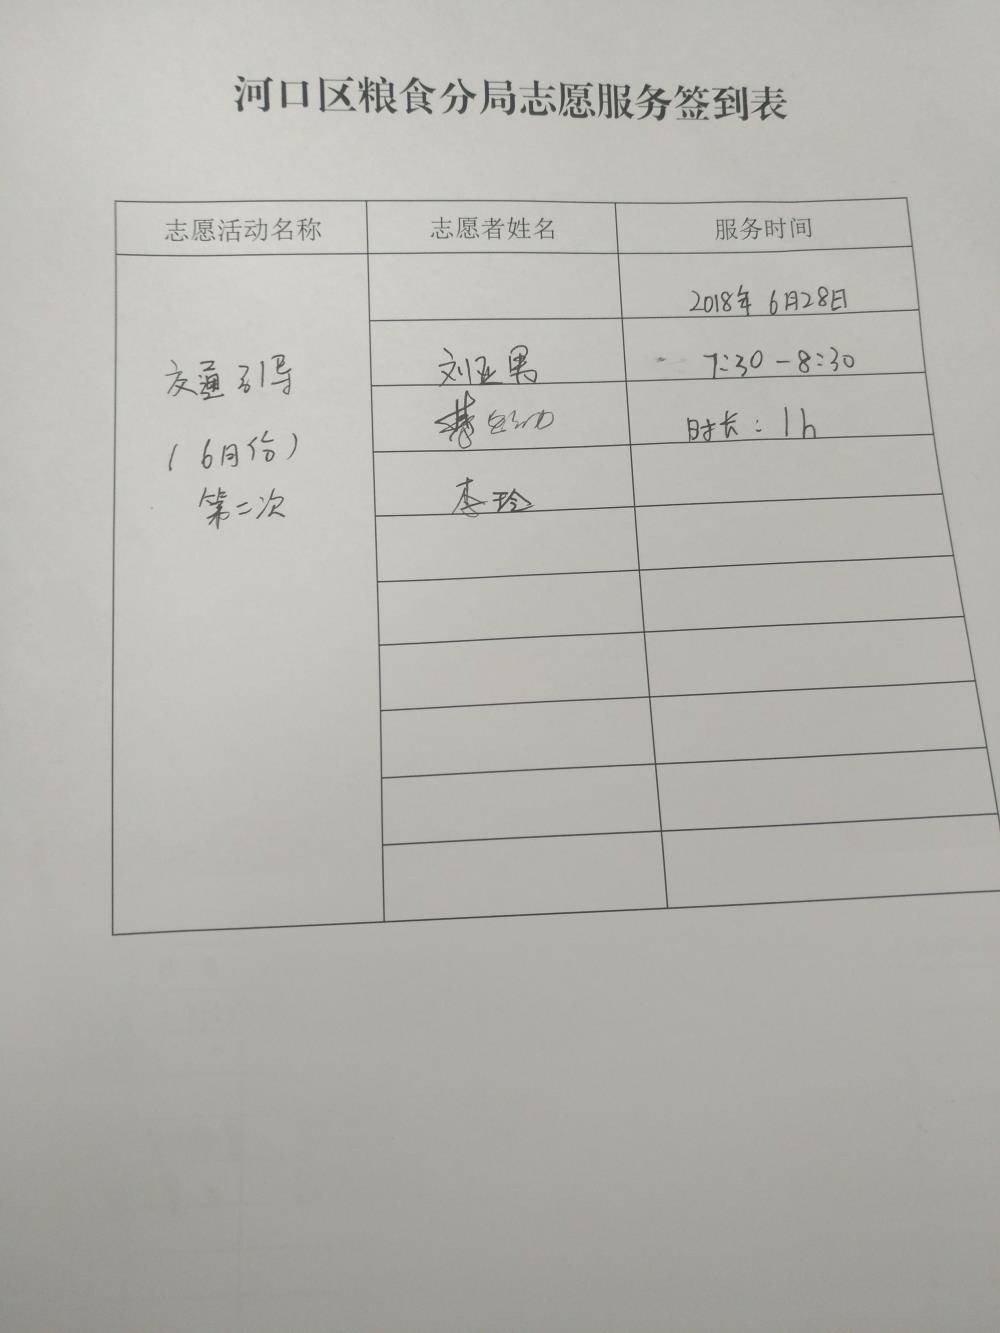 河口区粮食分局志愿服务签到表
志愿活动名称 志愿者姓名 服务时间
2018年6月28日
交通引导 刘亚男 7:30-8:30
时长：1h
（6月份）
第二次 李玲